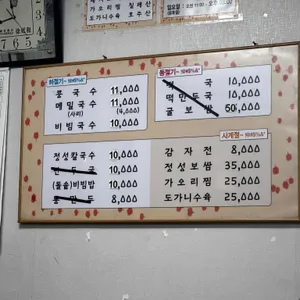 가오리찜 칠레산
도가니수육 호주산
하절기
콩국수 11,000
메밀국수 11,000
(사리) (4,000)
비빔국수 10,000
동절기
국 10,000
떡만두국 10,000
굴보쌈 50,000
정성칼국수 10,000
국 10,000
(돌솥)비빔밥 10,000
만두 8,000
사계절
감자전 8,000
정성보쌈 35,000
가오리찜 25,000
도가니수육 25,000